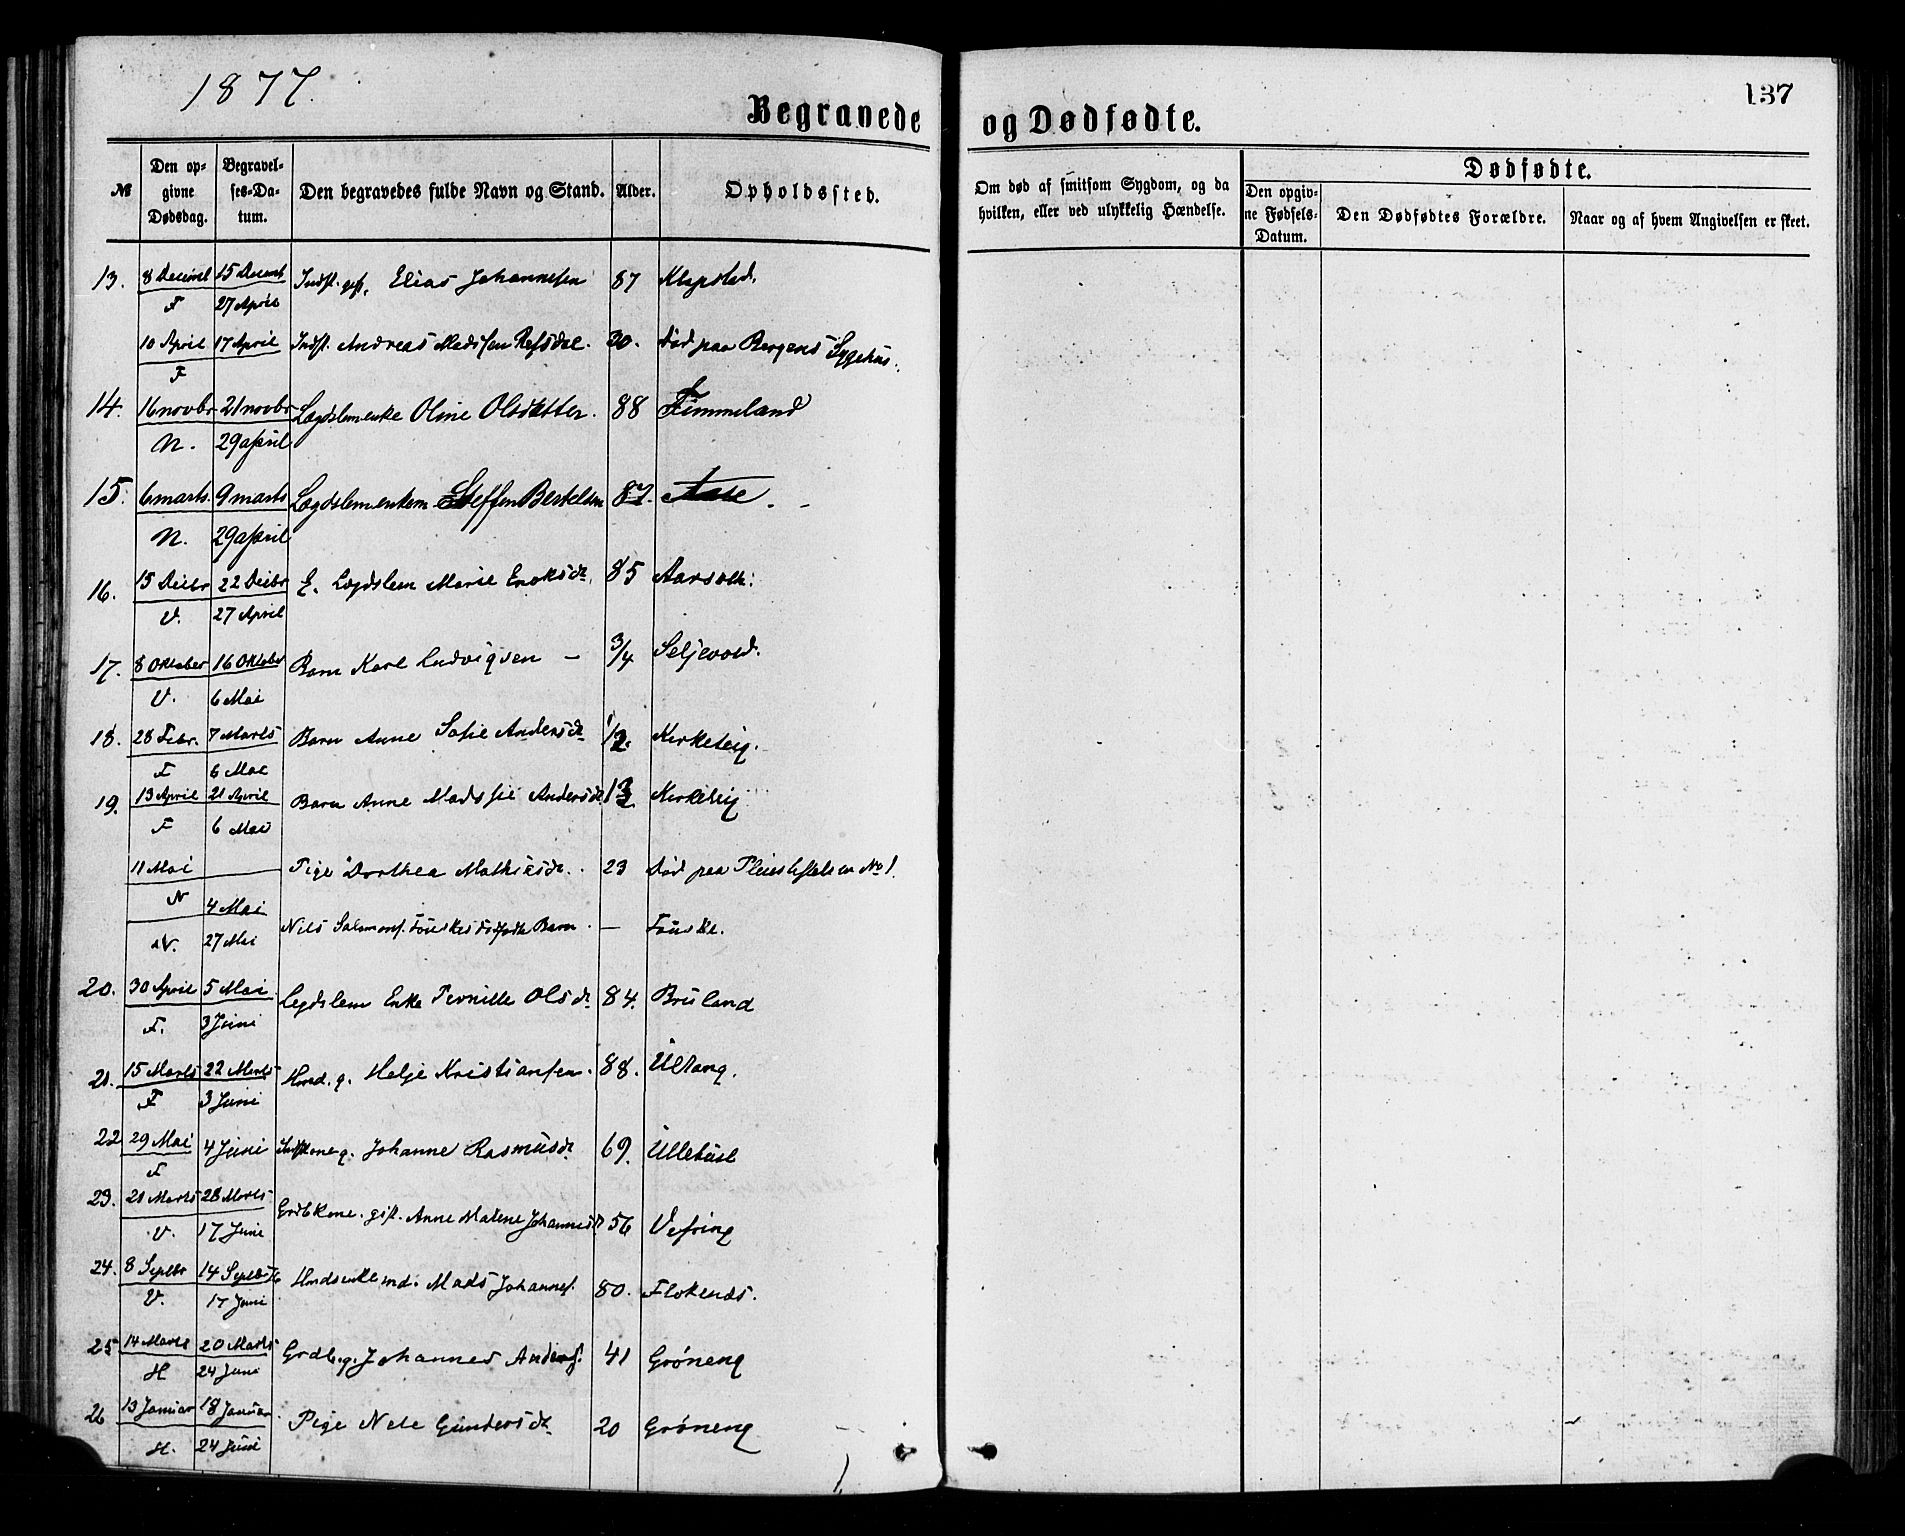 1877.
137
Begravede og Dødfødte.
№ Den opgivne Dødsdag. Begravelses-Datum. Den begravedes fulde Navn og Stand. Alder. Opholdssted. Om død af smitsom Sygdom, og da hvilken, eller ved ulykkelig Hændelse. Dødfødte. Den opgivne Fødsels-Datum. Den Dødfødtes Forældre. Naar og af hvem Angivelsen er skeet.
13. 8 Decembr 15 Decemb Indst. gift. Elias Johannesen 87 Klopstad.
F 27 April
10 April 17 April Indst. Andreas Madssen Refsdal. 30. Død paa Bergens Sygehus.
F
14. 16 novbr 21 novbr Lægdslem enke Oline Olsdatter. 88 Fimmeland
N. 29 april
15. 6 marts. 9 marts Lægdslem enkem Steffen Bertelsen 87. Aase
N. 29 april
16. 15 Decbr 22 Decbr E. Lægdslem Marie Enoksdr. 85
V. 27 April
17. 8 Oktober 16 Oktober Barn Karl Ludvigsen – 3/4 Seljevold.
V. 6 Mai
18. 28 Febr. 7 Marts Barn Anne Sofie Andersdr Kirketeig.
F 6 Mai
19. 13 April 21 April Barn Anne Andersdr Kirketeig
F 6 Mai
11 Mai Pige Dorthea Mathiesdr. 23 Død paa Pleiestiftelsen No 1.
N
4 Mai Nils Salomons. Føuskes dødfødte Barn. — Føuske.
N. 27 Mai
20. 30 April 5 Mai Legdslem Enke Pernille Olsdr 84. Bruland
F. 3 Juni
21. 15 Marts 22 Marts Hmd. g. Helje Kristiansen. 88. Ultang.
F 3 Juni
22 29 Mai 4 Juni g. Johanne Rasmusdr 69.
F
23. 21 Marts 28 Marts Grdbkone. gift. Anne Malene Johannesdr. 56 Vefring
V. 17 Juni
24. 8 Septbr 14 Septbr 76 Hmdsenkemd. Mads Johannes. 80. Flokenæs.
V. 17 Juni
25 14 Marts 20 Marts Grdb. g. Johannes Anders. 41 Grøneng
H 24 Juni
26 13 Januar 18 Januar Pige Nele Gundersdr 20 Grøneng
H. 24 Juni